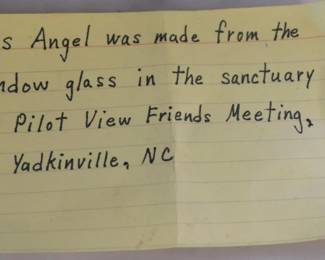 s Angel was made from the
ndow glass in the sanctuary
Pilot View Friends Meeting,
Yadkinville, NC